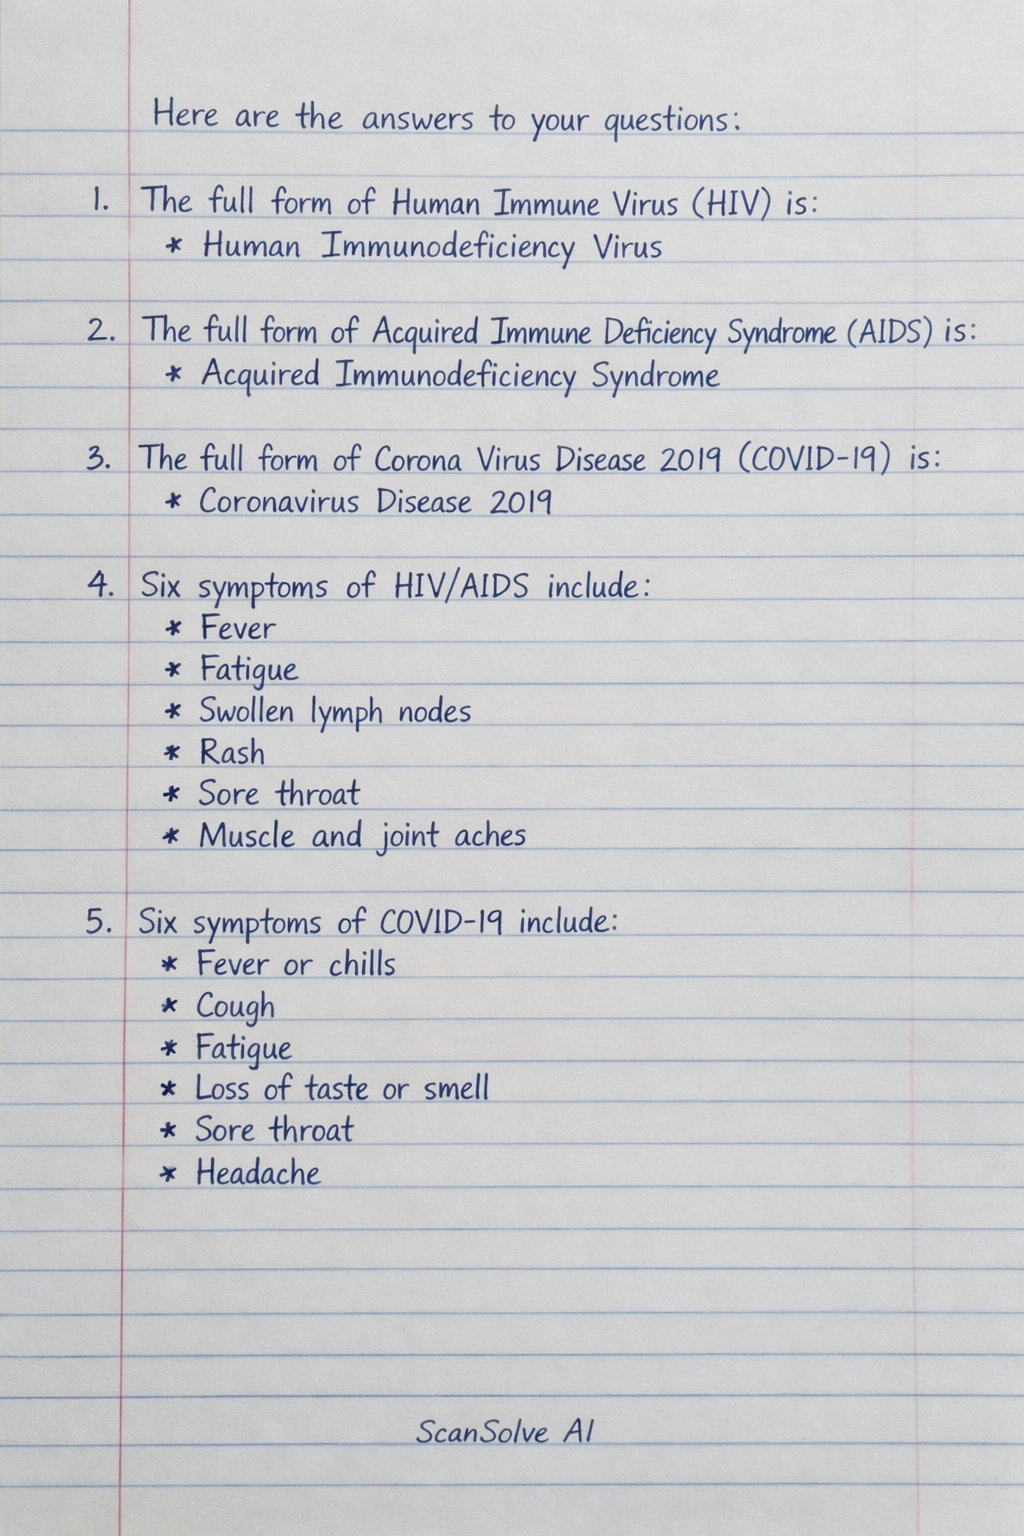 Here are the answers to your questions:
1. The full form of Human Immune Virus (HIV) is:
* Human Immunodeficiency Virus
2. The full form of Acquired Immune Deficiency Syndrome (AIDS) is:
* Acquired Immunodeficiency Syndrome
3. The full form of Corona Virus Disease 2019 (COVID-19) is:
* Coronavirus Disease 2019
4. Six symptoms of HIV/AIDS include:
* Fever
* Fatigue
* Swollen lymph nodes
* Rash
* Sore throat
* Muscle and joint aches
5. Six symptoms of COVID-19 include:
* Fever or chills
* Cough
* Fatigue
* Loss of taste or smell
* Sore throat
* Headache
ScanSolve AI